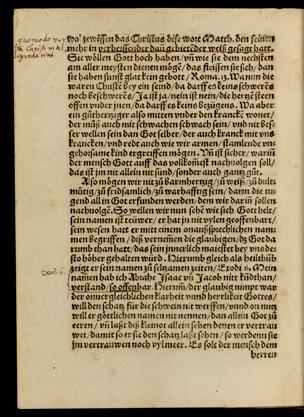 quomodo ver-
ba Christi in sc.
legenda
wol zewissen das Christus dise wort Matth. den seinen
mehr in verheissender dañ gebietender weiß gesagt hatt.
Sie wöllen Gott hoch haben/ vñ wie sie dem nechsten
am aller meysten dienen mögẽ/ das fleissen sie sich/ dañ
sie haben sunst glat kein gebott/ Roma. 13. Wann die
waren Christẽ bey ein seind/ da darff es keins schwerẽs
noch beschwerẽs/ Ja ist Ja/ nein ist nein/ die hertzẽ steen
offen vnder jnen/ da darff es keins bezügens. Wa aber
ein gůthertziger also mitten vnder den kranckẽ wonet/
der můß auch mit schwachen schwach sein/ vnd mit bes-
ser wellen sein dan Got selber/ der auch kranck mit vns
krancken/ vnd redt auch wie wir armen/ stamlende vn-
gehorsame kind ergreiffen mögen. Vñ ist sicher/ wañ
der mensch Gott auff das vollkomest nachuolgen soll/
das ist jm mit allein nit sünd/ sonder auch gantz gůt.
Also mögen wir mit zů barmhertzig/ zů weiß/ zů diemůtig/ zů fridsamlich/ zů warhafftig sein/ dann die tugend all in Got erfunden werden/ dem wir darum̃ sollen
nachuolgẽ. So wellen wir nun sehẽ wie sich Got helt/
sein namen ist teüwer/ er hat jn nit yglen geoffenbart/
sein wesen hatt er mitt einem onaußsprechlichen namen begriffen/ diß vernemen die glaubigen/ dz Got darumb than hatt/ das sein jnnerlich maiestet bey vns dester höher gehalten würd.
Exod. 6.
zeigt er sein namen zů seltzamen zeiten/ Exodi 6. Mein
namen hab ich Abrahã Isaac vñ Jacob nit kundthan/
verstand/ so offenbar. Hierum̃/ der glaubig nimpt war
der onuergleichlichen klarheit vnnd herrlikeit Gottes/
will den schatz für die schwein nit werffen/ vnnd on nutz
will er göttlichen namen nit nennen/ dan allein Got zů
eeren/ vñ laßt diß kleinot allein sehen denen er vertrau
wet/ damit so er sie den schatz laßt sehen/ so werdenn sie
jm vertrawen noch vyl meer. Es solt der mensch dem
herren